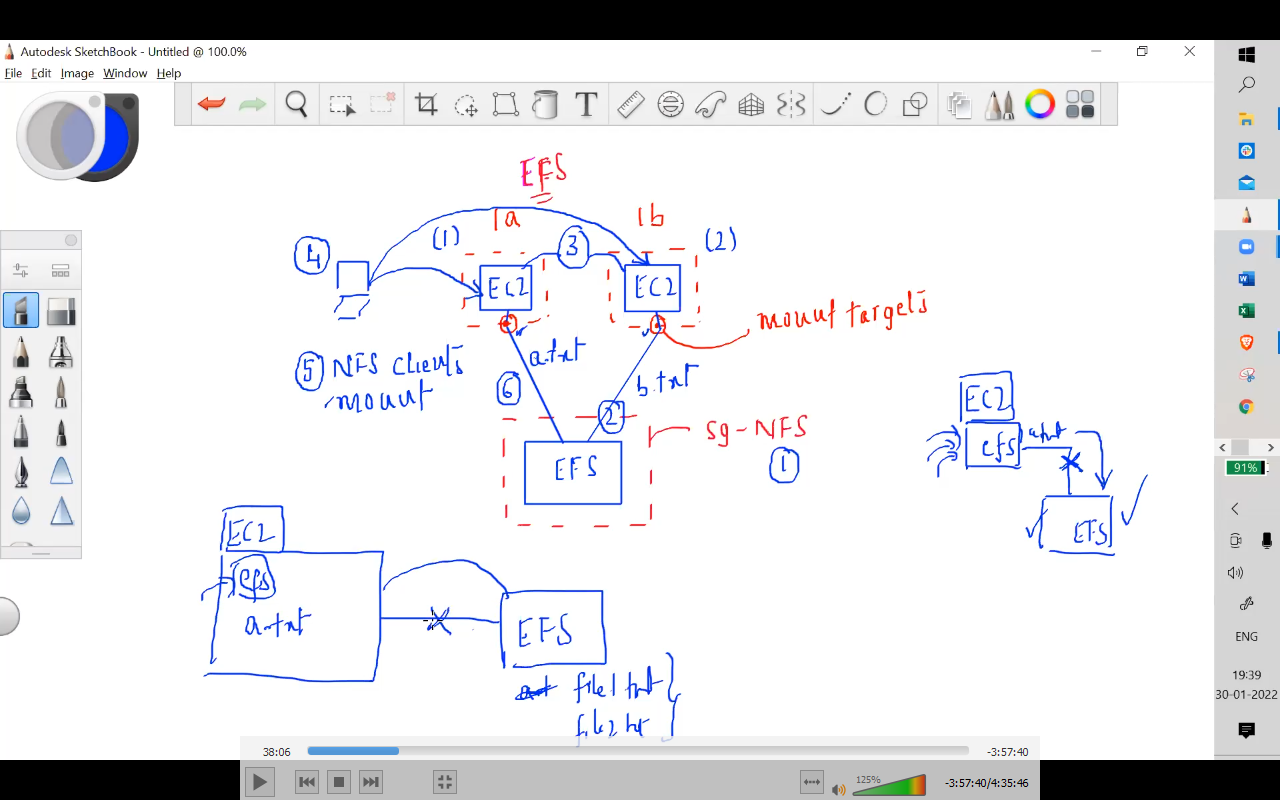 Autodesk SketchBook - Untitled @ 100.0%
File Edit Image Window Help
T
EFS
1a
1b
(1)
3
(2)
4
EC2
EC2
mount targets
a.txt
5 NFS clients
mount
6
b.txt
2
EC2
sg-NFS
efs
a.txt
1
EFS
91%
EC2
EFS
efs
a.txt
EFS
file1 txt
file2 txt
ENG
19:39
30-01-2022
38:06
-3:57:40
125%
-3:57:40/4:35:46